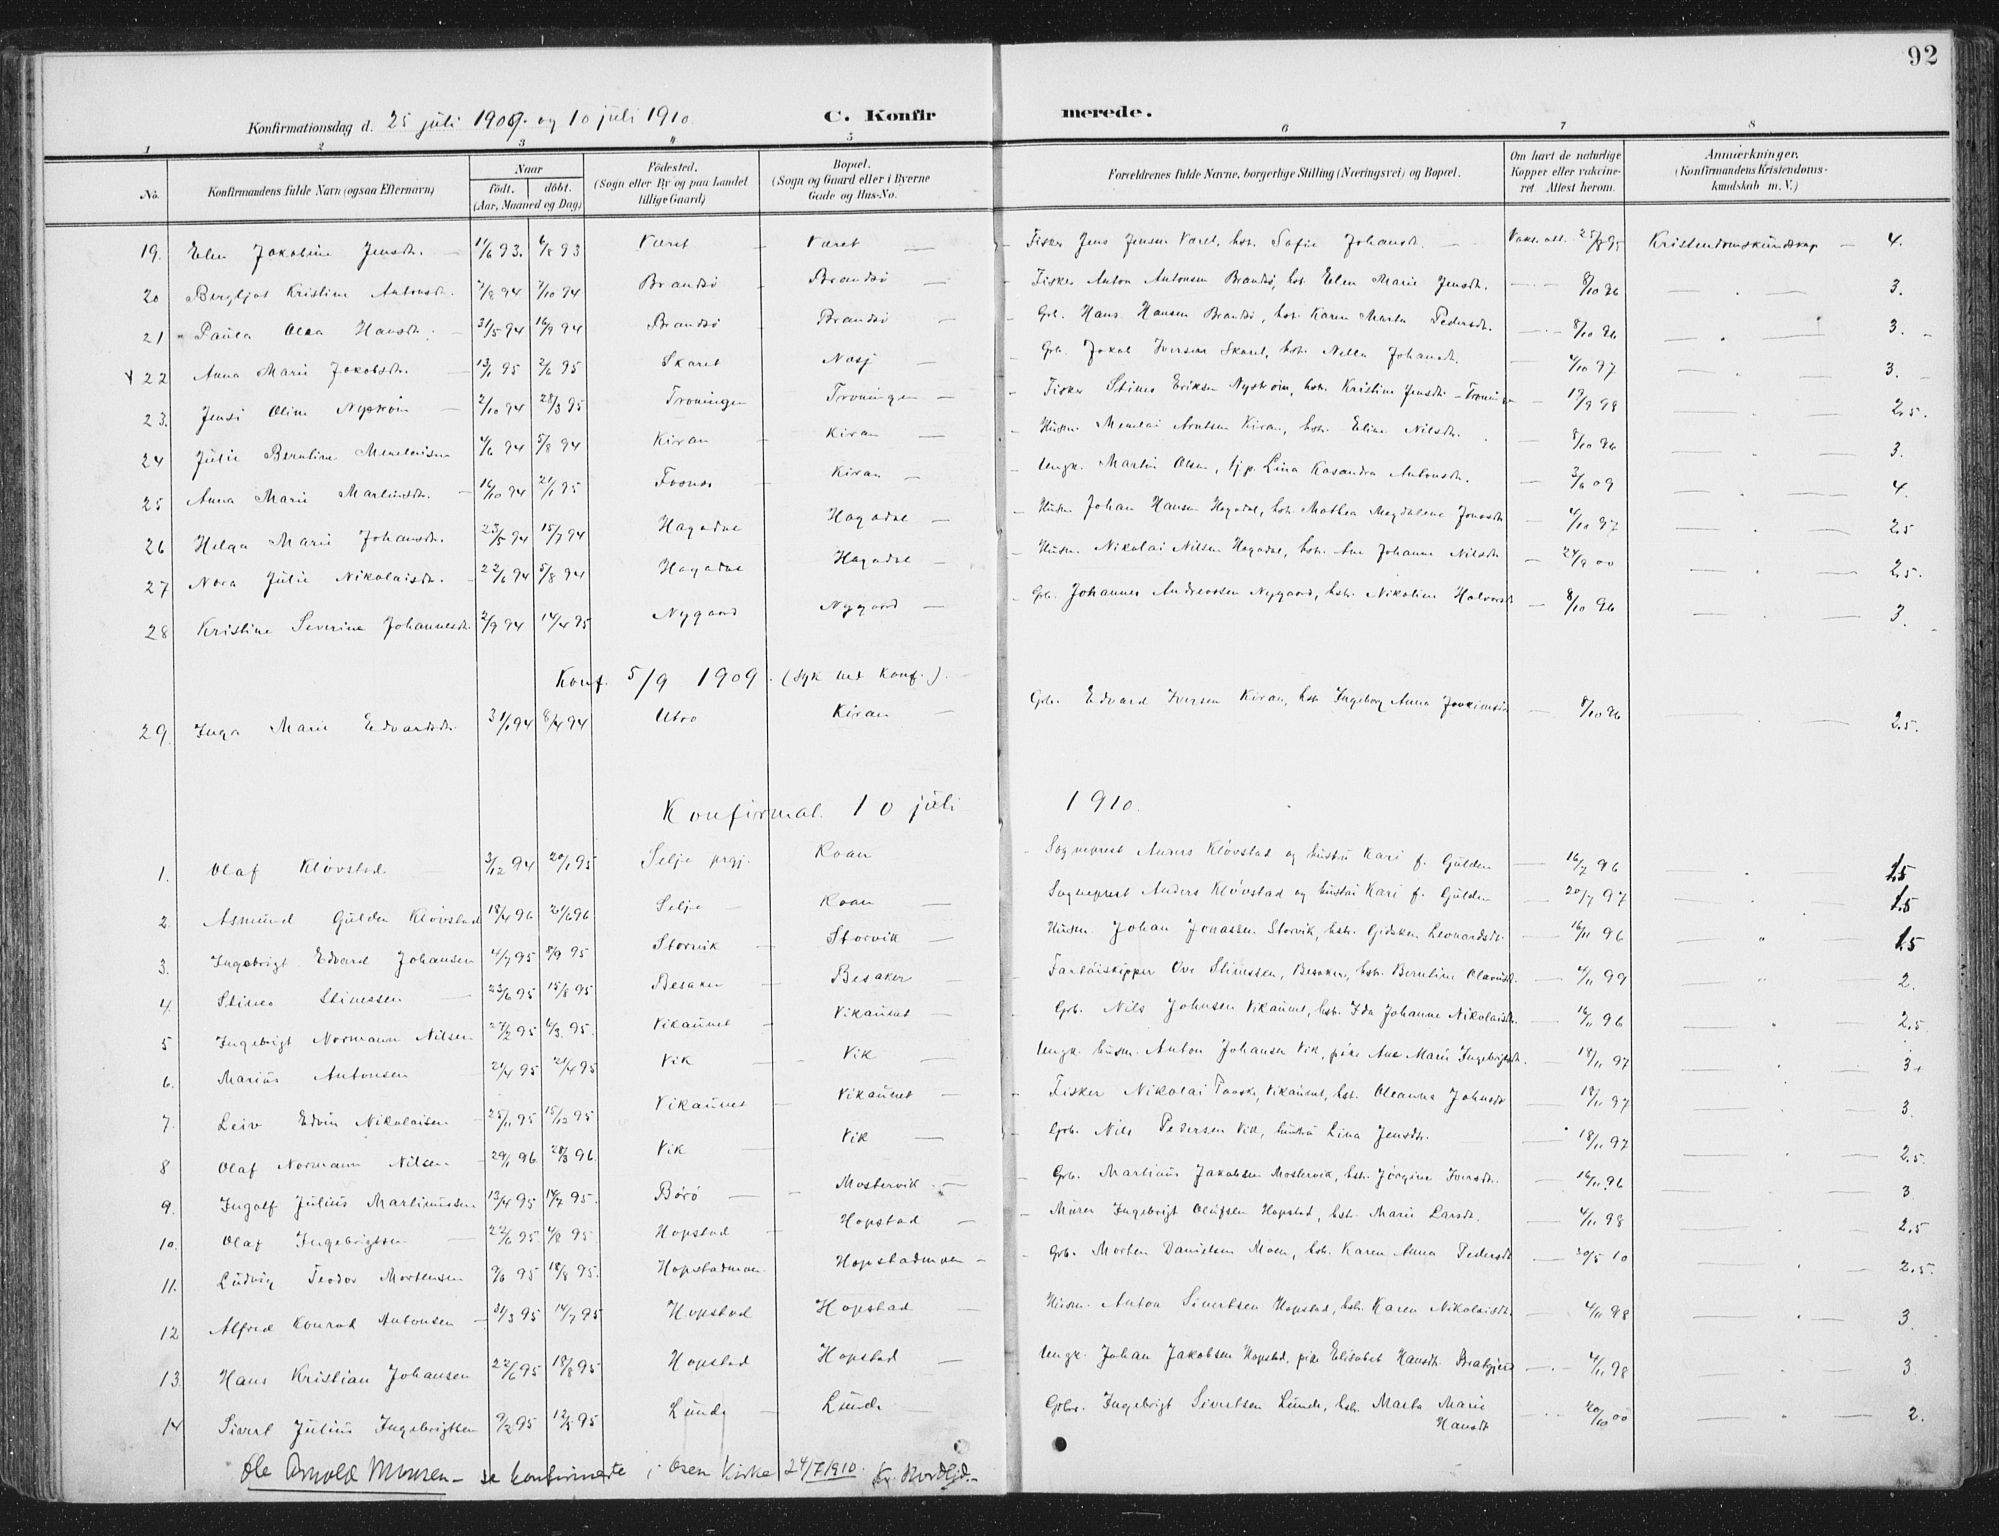 92
Konfirmationsdag d. 25 juli 1909. og 10 juli 1910. C. Konfirmerede.
1 2 3 4 5 6 7 8
No. Konfirmandens fulde Navn (ogsaa Efternavn) Naar födt. döbt. (Aar, Maaned og Dag) Födested. (Sogn eller By og paa Landet tillige Gaard) Bopæl. (Sogn og Gaard eller i Byerne Gade og Hus-No. Forældrenes fulde Navne, borgerlige Stilling (Næringsvei) og Bopæl. Om havt de naturlige Kopper eller vakcineret. Attest herom. Anmærkninger. (Konfirmandens Kristendomskundskab m. V.)
19. Elen Jakobine Jensdtr. 11/6 93. 6/8 93 Været Været Fisker Jens Jensen Været, hst. Sofie Johansdtr. Vakc. att. 25/8 95 Kristendomskundskap 4.
20 Bergljot Kristine Antonsdtr. 2/8 94 7/10 94 Brandsö Brandsö Fisker Anton Antonsen Brandsö, hst. Elen Marie Jensdtr. 8/10 96 3.
21 Paula Olea Hansdtr. 31/5 94 16/9 94 Brandsö Brandsö Grb. Hans Hansen Brandsö, hst. Karen Marta Pedersdtr. 8/10 96 3.
22 Anna Marie Jakobsdtr. 13/1 95 2/6 95 Skaret Nasj Grb. Jakob Iversen Skaret, hst. Nella Johansdtr. 4/10 97 3.
23. Jensi Oline Nyström 2/10 94 28/3 95 Troningen Troningen Fisker Stines Eriksen Nyström, hst. Kristine Jensdtr. Troningen 19/9 98 2.5.
24 Julie Berntine Menelaisen 4/6 94 5/8 94 Kiran Kiran Husm. Menelai Arntsen Kiran, hst. Eline Nilsdtr. 8/10 96 3.
25 Anna Marie Martinsdtr. 16/10 94 21/1 95 Fosnes Kiran Ungk. Martin Olsen, tjp. Lina Kasandra Antonsdtr. 3/6 09 4.
26 Helga Marie Johansdtr. 23/5 94 15/7 94 Hagadal Hagadal Husm. Johan Hansen Hagadal, hst. Mathea Magdalene Jonasdtr 4/10 97 2.5
27 Nora Julie Nikolaisdtr. 22/6 94 5/8 94 Hagadal Hagadal Husm. Nikolai Nilsen Hagadal, hst. Ane Johanne Nilsdtr 24/9 00 2.5.
28 Kristine Severine Johannesdtr. 2/9 94 14/4 95 Nygaard Nygaard Grb. Johannes Andreassen Nygaard, hst. Nikoline Halvorsdtr 8/10 96 3.
Konf. 5/9 1909. (syk ved Konf.).
29. Inga Marie Edvardsdtr. 31/1 94 8/4 94 Utro Kiran Grb. Edvard Iversen Kiran, hst. Ingeborg Anna Joakimsdtr 8/10 96 2.5.
Konfirmat. 10 juli 1910.
1. Olaf Klövstad 3/12 94 20/1 95 Selje prgj. Roan Sogneprest Anders Klövstad og hustru Kari f. Gulden 16/7 96 1.5
2. Asmund Gulden Klövstad 18/4 96 21/6 96. Selje Roan Sogneprest Anders Klövstad og hustru Kari f. Gulden 20/7 97 1.5
3. Ingebrigt Edvard Johansen 4/7 95 8/9 95 Storvik Storvik Husm. Johan Jonassen Storvik, hst. Gidsken Leonardsdtr. 16/11 96 1.5
4. Stines Stinessen 23/6 95 15/8 95 Besaker Besaker Fartöiskipper Ove Stinessen, Besaker, hst. Berntine Olausdtr. 4/11 99 2.
5 Ingebrigt Normann Nilsen 27/2 95 6/3. 95. Vikaunet Vikaunet Grb. Nils Johnsen Vikaunet, hst. Ida Johanne Nikolaisdtr. 16/11 96 2.5.
6. Marius Antonsen 2/4 95 21/4 95 Vik Vik Ungk. husm. Anton Johansen Vik, pike Ane Marie Ingebrigtsdtr. 18/11 97 3.
7. Leiv Edvin Nikolaisen 25/11 95 15/12 95 Vikaunet Vikaunet Fisker Nikolai Paaske, Vikaunet, hst. Oleanna Johnsdtr 18/11 97 3.
8 Olaf Normann Nilsen 29/1 96. 28/3 96. Vik Vik Grb. Nils Pedersen Vik, hustru Lina Jensdtr. 18/11 97 2.5.
9. Ingolf Julius Martinussen 13/4 95 14/7 95. Börö Mostervik Grb. Martinus Jakobsen Mostervik, hst. Jörgine Iversdtr. 16/11 96 3
10. Olaf Ingebrigtsen 22/6 95. 4/8 95. Hopstad Hopstad Murer Ingebrigt Olufsen Hopstad, hst. Marie Larsdtr. 4/11 98 2.5
11. Ludvig Teodor Mortensen 9/6 95 18/8 95. Hopstadmoen Hopstadmoen Grb. Morten Danielsen Moen, hst. Karen Anna Pedersdtr 30/5 10 2.5.
12 Alfred Konrad Antonsen 31/3 95 14/7 95 Hopstad Hopstad Husm. Anton Sivertsen Hopstad, hst. Karen Nikolaisdtr. 4/11 98 3.
13. Hans Kristian Johansen 22/6 95 18/8 95 Hopstad Hopstad Ungk. Johan Jakobsen Hopstad, pike Elisabet Hansdtr. 4/11 98 3
14 Sivert Julius Ingebrigtsen 9/2 95 12/5 95 Lunde Lunde Grbr. Ingebrigt Sivertsen Lunde, hst. Marta Marie Hansdtr 20/10 00 2.
Ole Arnold Monsen – se konfirmerte i Osen Kirke 24/7 1910.